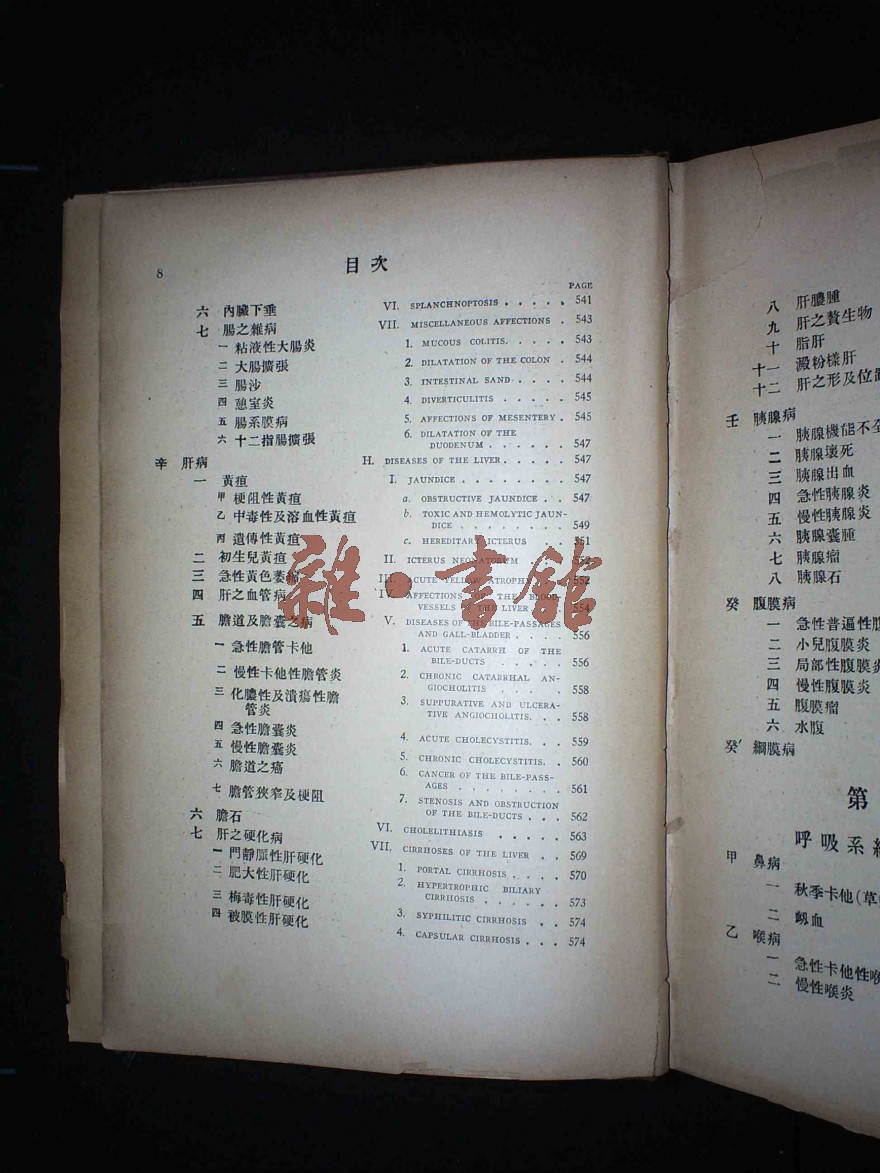 8
目次
PAGE
六 內臟下垂 VI. SPLANCHNOPTOSIS . . . . . 541
七 腸之雜病 VII. MISCELLANEOUS AFFECTIONS . 543
一 粘液性大腸炎 1. MUCOUS COLITIS. . . . . 543
二 大腸擴張 2. DILATATION OF THE COLON . 544
三 腸沙 3. INTESTINAL SAND. . . . . 544
四 憩室炎 4. DIVERTICULITIS . . . . . 545
五 腸系膜病 5. AFFECTIONS OF MESENTERY . 545
六 十二指腸擴張 6. DILATATION OF THE
DUODENUM . . . . . . 547
辛 肝病 H. DISEASES OF THE LIVER. . . . . 547
一 黃疸 I. JAUNDICE . . . . . . . 547
甲 梗阻性黃疸 a. OBSTRUCTIVE JAUNDICE . . 547
乙 中毒性及溶血性黃疸 b. TOXIC AND HEMOLYTIC JAUN-
DICE . . . . . . . . 549
丙 遺傳性黃疸 c. HEREDITARY ICTERUS . . 551
二 初生兒黃疸 II. ICTERUS NEONATORUM . . 552
三 急性黃色萎縮 III. ACUTE YELLOW ATROPHY . . 552
四 肝之血管病 IV. AFFECTIONS OF THE BLOOD-
VESSELS OF THE LIVER . . 554
五 膽道及膽囊之病 V. DISEASES OF THE BILE-PASSAGES
AND GALL-BLADDER . . . . 556
一 急性膽管卡他 1. ACUTE CATARRH OF THE
BILE-DUCTS . . . . . 556
二 慢性卡他性膽管炎 2. CHRONIC CATARRHAL AN-
GIOCHOLITIS . . . . . 558
三 化膿性及潰瘍性膽
管炎 3. SUPPURATIVE AND ULCERA-
TIVE ANGIOCHOLITIS. . . 558
四 急性膽囊炎 4. ACUTE CHOLECYSTITIS. . . 559
五 慢性膽囊炎 5. CHRONIC CHOLECYSTITIS. . 560
六 膽道之癌 6. CANCER OF THE BILE-PASS-
AGES . . . . . . . 561
七 膽管狹窄及梗阻 7. STENOSIS AND OBSTRUCTION
OF THE BILE-DUCTS . . . 562
六 膽石 VI. CHOLELITHIASIS . . . . . 563
七 肝之硬化病 VII. CIRRHOSES OF THE LIVER . . 569
一 門靜脈性肝硬化 1. PORTAL CIRRHOSIS . . . . 570
二 肥大性肝硬化 2. HYPERTROPHIC BILIARY
CIRRHOSIS . . . . . . 573
三 梅毒性肝硬化 3. SYPHILITIC CIRRHOSIS . . 574
四 被膜性肝硬化 4. CAPSULAR CIRRHOSIS . . . 574
雜·書館
八 肝膿腫
九 肝之贅生物
十 脂肝
十一 澱粉樣肝
十二 肝之形及位置
壬 胰腺病
一 胰腺機能不全
二 胰腺壞死
三 胰腺出血
四 急性胰腺炎
五 慢性胰腺炎
六 胰腺囊腫
七 胰腺瘤
八 胰腺石
癸 腹膜病
一 急性普遍性腹
二 小兒腹膜炎
三 局部性腹膜炎
四 慢性腹膜炎
五 腹膜瘤
六 水腹
癸′ 網膜病
第
呼吸系統
甲 鼻病
一 秋季卡他(草
二 衂血
乙 喉病
一 急性卡他性喉
二 慢性喉炎